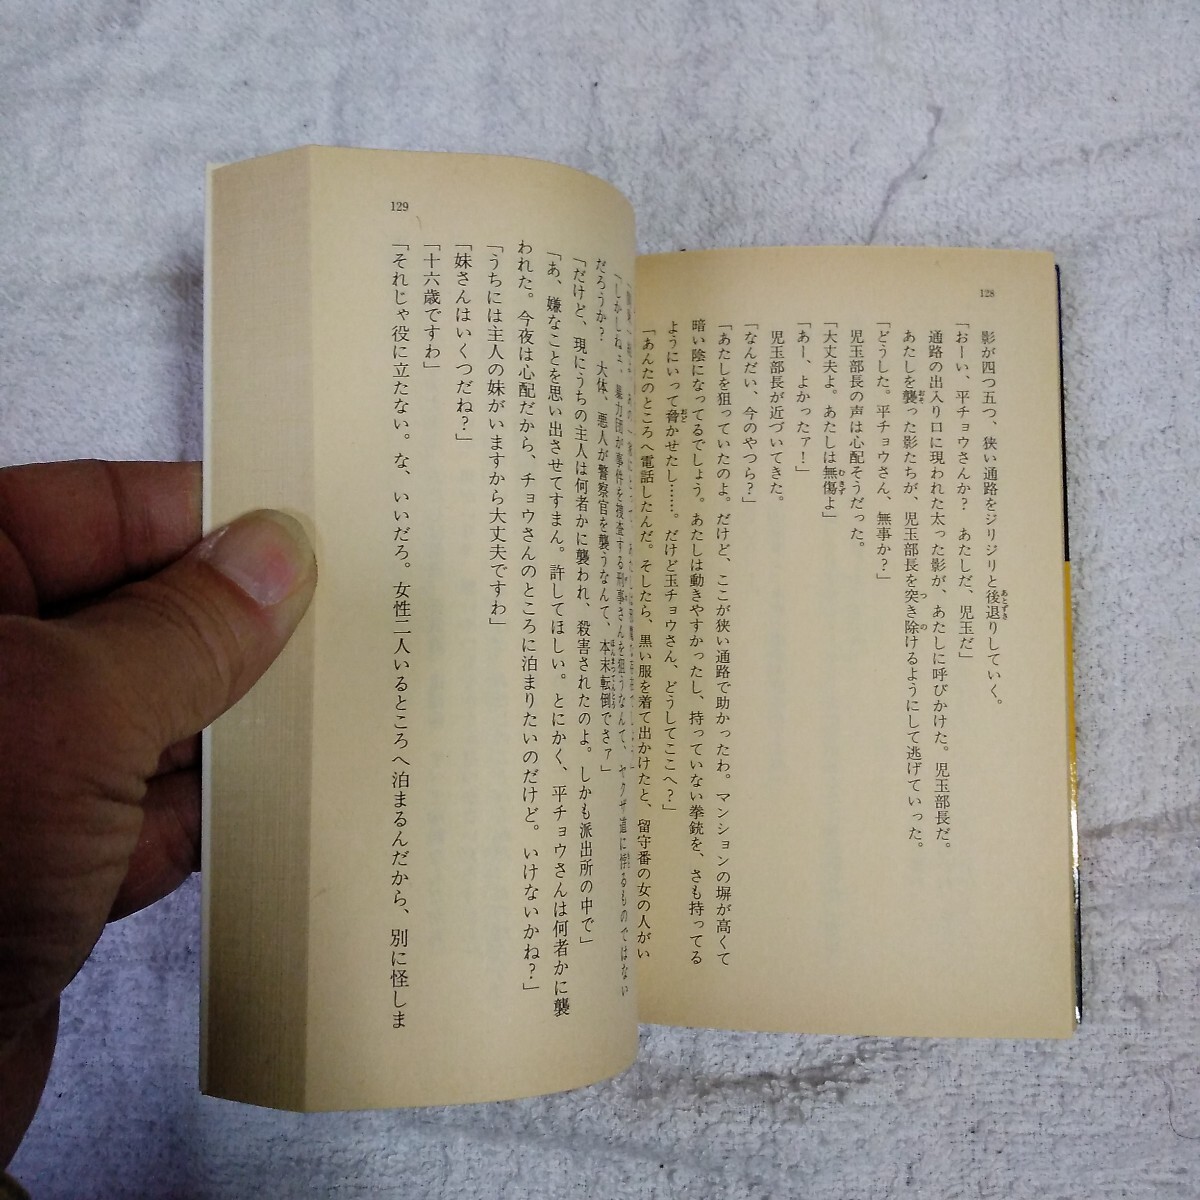 128
影が四つ五つ、狭い通路をジリジリと後退りしていく。
「おーい、平チョウさんか? あたしだ、児玉だ」
通路の出入り口に現われた太った影が、あたしに呼びかけた。児玉部長だ。
あたしを襲った影たちが、児玉部長を突き除けるようにして逃げていった。
「どうした。平チョウさん、無事か?」
児玉部長の声は心配そうだった。
「大丈夫よ。あたしは無傷よ」
「あー、よかったァ!」
児玉部長が近づいてきた。
「なんだい、今のやつら?」
「あたしを狙っていたのよ。だけど、ここが狭い通路で助かったわ。マンションの塀が高くて
暗い陰になってるでしょう。あたしは動きやすかったし、持っていない拳銃を、さも持ってる
ようにいって脅かせたし……。だけど玉チョウさん、どうしてここへ?」
「あんたのところへ電話したんだ。そしたら、黒い服を着て出かけたと、留守番の女の人がい
129
「しかしねェ、暴力団が事件を捜査する刑事さんを狙うなんて、ヤクザ道に悖るものではない
だろうか? 大体、悪人が警察官を襲うなんて、本末転倒でさァ」
「だけど、現にうちの主人は何者かに襲われ、殺害されたのよ。しかも派出所の中で」
「あ、嫌なことを思い出させてすまん。許してほしい。とにかく、平チョウさんは何者かに襲
われた。今夜は心配だから、チョウさんのところに泊まりたいのだけど。いけないかね?」
「うちには主人の妹がいますから大丈夫ですわ」
「妹さんはいくつだね?」
「十六歳ですわ」
「それじゃ役に立たない。な、いいだろ。女性二人いるところへ泊まるんだから、別に怪しま